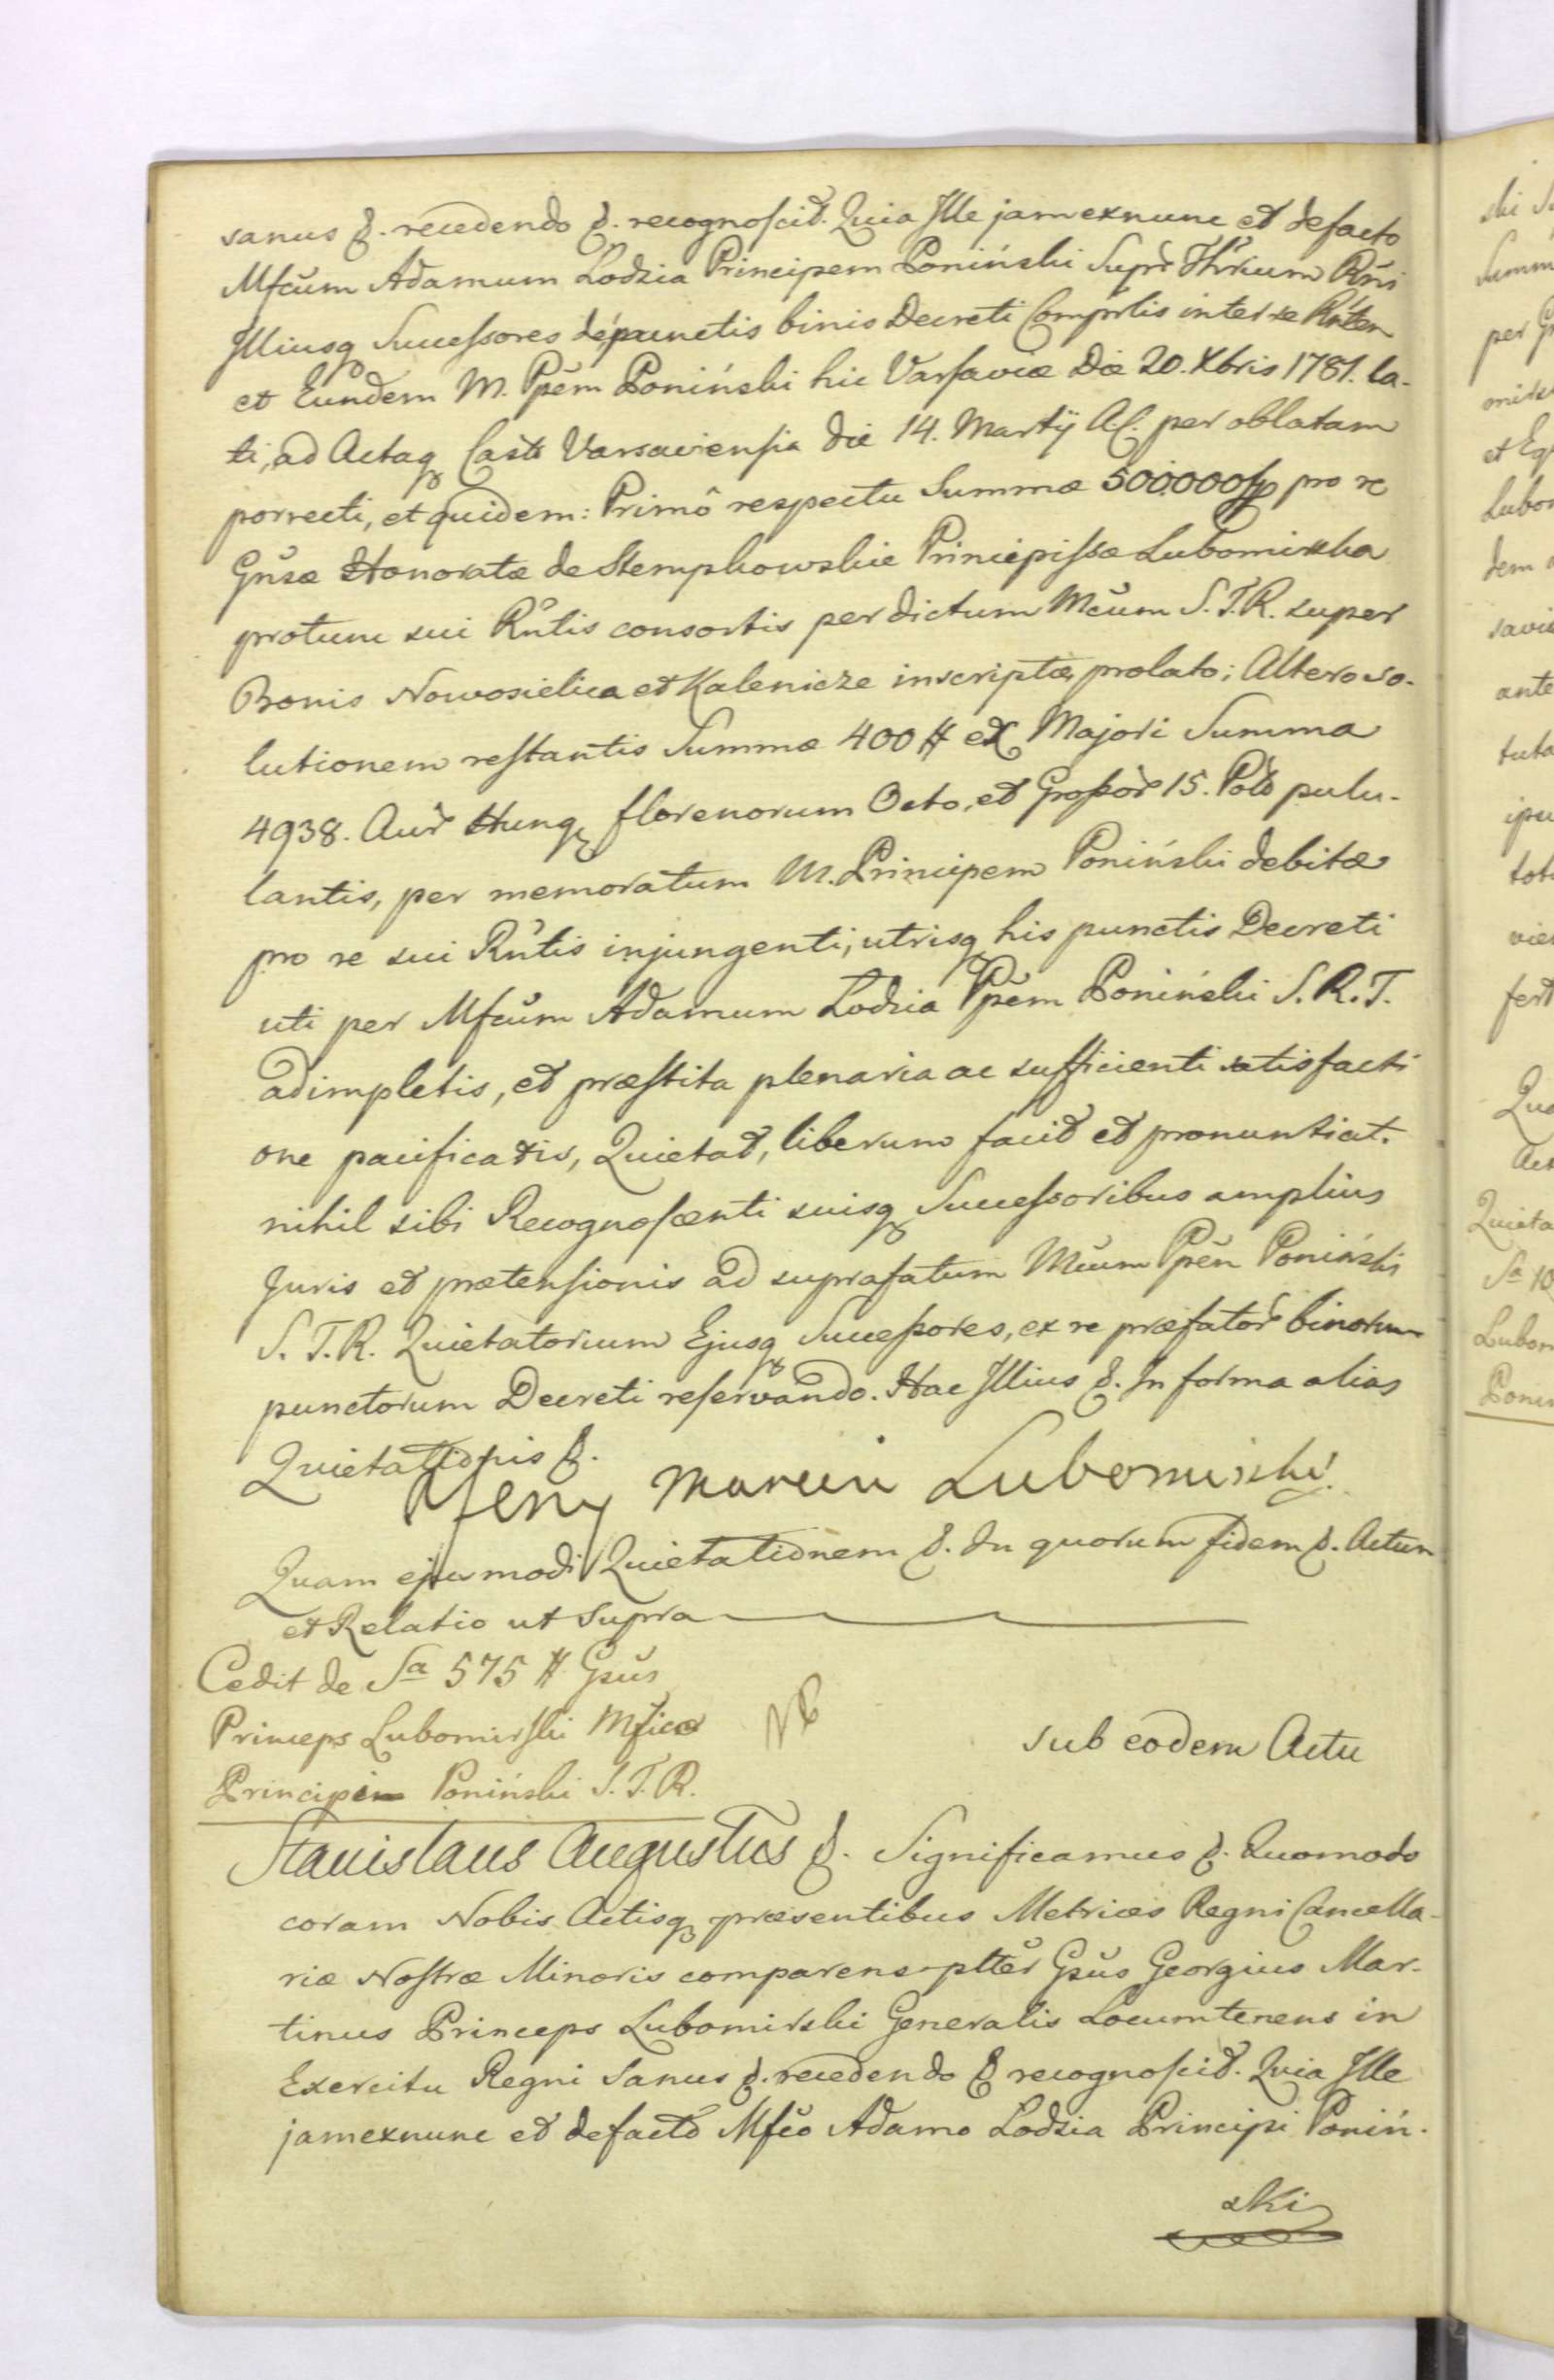 sanus &. recedendo &. recognoscit. Quia Ille jam exnunc et defacto
Mfcum Adamum Lodzia Principem Poniński Supr Thrium Rni
Illiusq Successores de punctis binis Decreti Comprlis inter se Rnten
et Eundem M. Ppem Poniński hic Varsaviæ Die 20. Xbris 1781. la-
ti, ad Actaq Casts Varsaviensia die 14. Martij A.C. per oblatam
porrecti, et quidem: Primô respectu Summæ 500.000 fp pro re
Gnsæ Honoratæ de Stempkowskie Principissæ Lubomirska
protunc sui Rntis consortis per dictum Mcum S.T.R. super
Bonis Nowosielica et Kalenicze inscriptæ, prolato; Altero so-
lutionem restantis Summæ 400 # ex Majori Summa
4938. Aur Hung florenorum Octo, et Grossor 15. Pols pulu-
lantis, per memoratum M. Principem Poniński debitæ
pro re sui Rntis injungenti, utrisq his punctis Decreti
uti per Mfcum Adamum Lodzia Ppem Poniński S.R.T.
adimpletis, et præstita plenaria ac sufficienti satisfacti
one pacificatis, Quietat, liberum facit et pronuntiat.
nihil sibi Recognoscenti suisq Successoribus amplius
Juris et prætensionis ad suprafatum Mcum Ppen Poniński
S.T.R. Quietatorium Ejusq Successores, ex re præfator binorum
punctorum Decreti reservando. Hac Illius &. In forma alias
Quietationis &.
Marcin Lubomirski
Quam ejusmodi Quietationem &. In quorum fidem &. Actum
et Relatio ut Supra
Cedit de Sa 575 # Gsus
Princeps Lubomirski Mfico
Principi Poniński S.T.R.
NB
Sub eodem Actu
Stanislaus Augustus &. Significamus &. Quomodo
coram Nobis Actisq præsentibus Metrices Regni Cancella-
riæ Nostræ Minoris comparens pltter Gsus Georgius Mar-
tinus Princeps Lubomirski Generalis Locumtenens in
Exercitu Regni Sanus &. recedendo & recognoscit. Quia Ille
jam exnunc et defacto Mfco Adamo Lodzia Principi Poniń-
ski